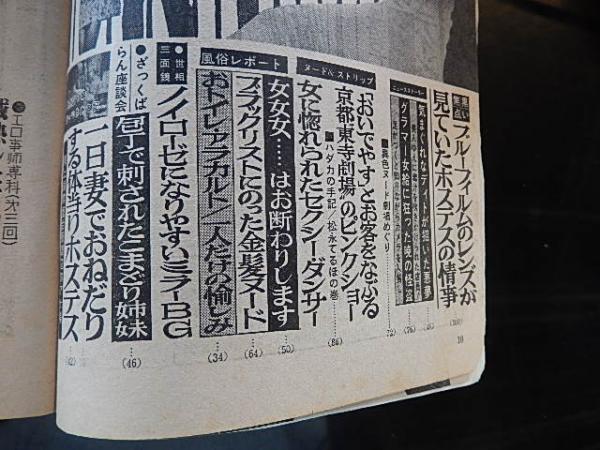 ブルーフィルムのレンズが
見ていたホステスの情事
ニュースストーリー
気まぐれなデートが招いた悪夢
グラマー女性に狂った暁の怪盗
■異色ヌード劇場めぐり
72
ヌード&ストリップ
“おいでやす”とお客をなぶる
京都“東寺劇場”のピンクショー
■ハダカの手記/松永てるほの巻
(86)
女に惚れられたセクシーダンサー
女女女……はお断わりします
(50)
風俗レポート
ブラックリストにのった金髪ヌード
(64)
おトイレアラカルト/一人だけの愉しみ
(34)
●世相三面鏡
ノイローゼになりやすいミラーBG
●ざっくばらん座談会
包丁で刺されたこまどり姉妹
(46)
一日妻でおねだり
する体当りホステス
●エロ事師専科(才三回)
10